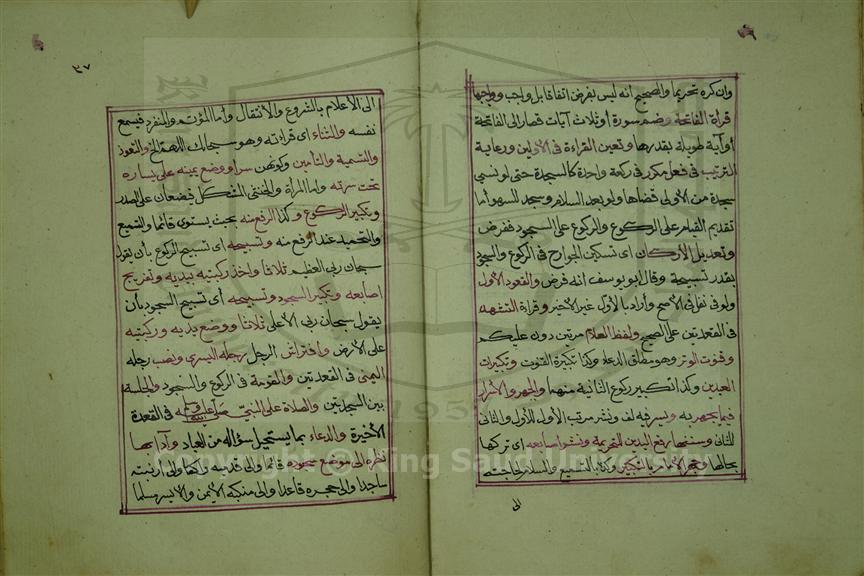 وان كره تحريما والصحيح انه ليس بفرض اتفاقا بل واجب وواجبها
قرأة الفاتحة وضم سورة أو ثلاث آيات قصار الى الفاتحة
أو آية طويلة بقدرها وتعين القراءة فى الأولين ورعاية
الترتيب فى فعل مكرر فى ركعة واحدة كالسجدة حتى لو نسى
سجدة من الأولى قضاها ولو بعد السلام وسجد للسهو أما
تقديم القيام على الركوع والركوع على السجود ففرض
وتعديل الأركان اى تسكين الجوارح فى الركوع والسجود
بقدر تسبيحة وقال ابو يوسف انه فرض والقعود الأول
ولو فى نفل فى الأصح وأراد بالأول غير الأخير وقراءة التشهد
فى القعدتين على الصحيح ولفظ السلام مرتين دون عليكم
وقنوت الوتر وهو مطلق الدعاء وكذا تكبيرة القنوت وتكبيرات
العيدين وكذا تكبير ركوع الثانية منهما والجهر والأسرار
فيما يجهر به ويسر فيه لف ونشر مرتب الأول للأول والثانى
للثانى وسننها رفع اليدين للتحريمة ونشر اصابعه اى تركها
بحالها وجهر الأمام بالتكبير وكذا بالتسميع والسلام لحاجته
الى
٣٧
الى الأعلام بالشروع والأنتقال وأما المؤتم والمنفرد فيسمع
نفسه والثناء اى قراءته وهو سبحانك اللهم الخ والتعوذ
والتسمية والتأمين وكونهن سرا ووضع يمينه على يساره
تحت سرته واما المرأة والخنثى المشكل فيضعان على الصدر
وتكبير الركوع وكذا الرفع منه بحيث يستوى قائما والتسميع
والتحميد عند الرفع منه وتسبيحه اى تسبيح الركوع بأن يقول
سبحان ربى العظيم ثلاثا واخذ ركبتيه بيديه وتفريج
اصابعه وتكبير السجود وتسبيحه أى تسبيح السجود بأن
يقول سبحان ربى الأعلى ثلاثا ووضع يديه وركبتيه
على الأرض وافتراش الرجل رجله اليسرى ونصب رجله
اليمنى فى القعدتين والقومة فى الركوع والسجود والجلسة
بين السجدتين والصلاة على النبى صلى الله عليه وسلم فى القعدة
الأخيرة والدعاء بما يستحيل سؤاله من العباد وآدابها
نظره الى موضع سجوده قائما والى قدميه راكعا والى ارنبته
ساجدا والى حجره قاعدا والى منكبه الأيمن والأيسر مسلما
Copyright © King Saud University
1957